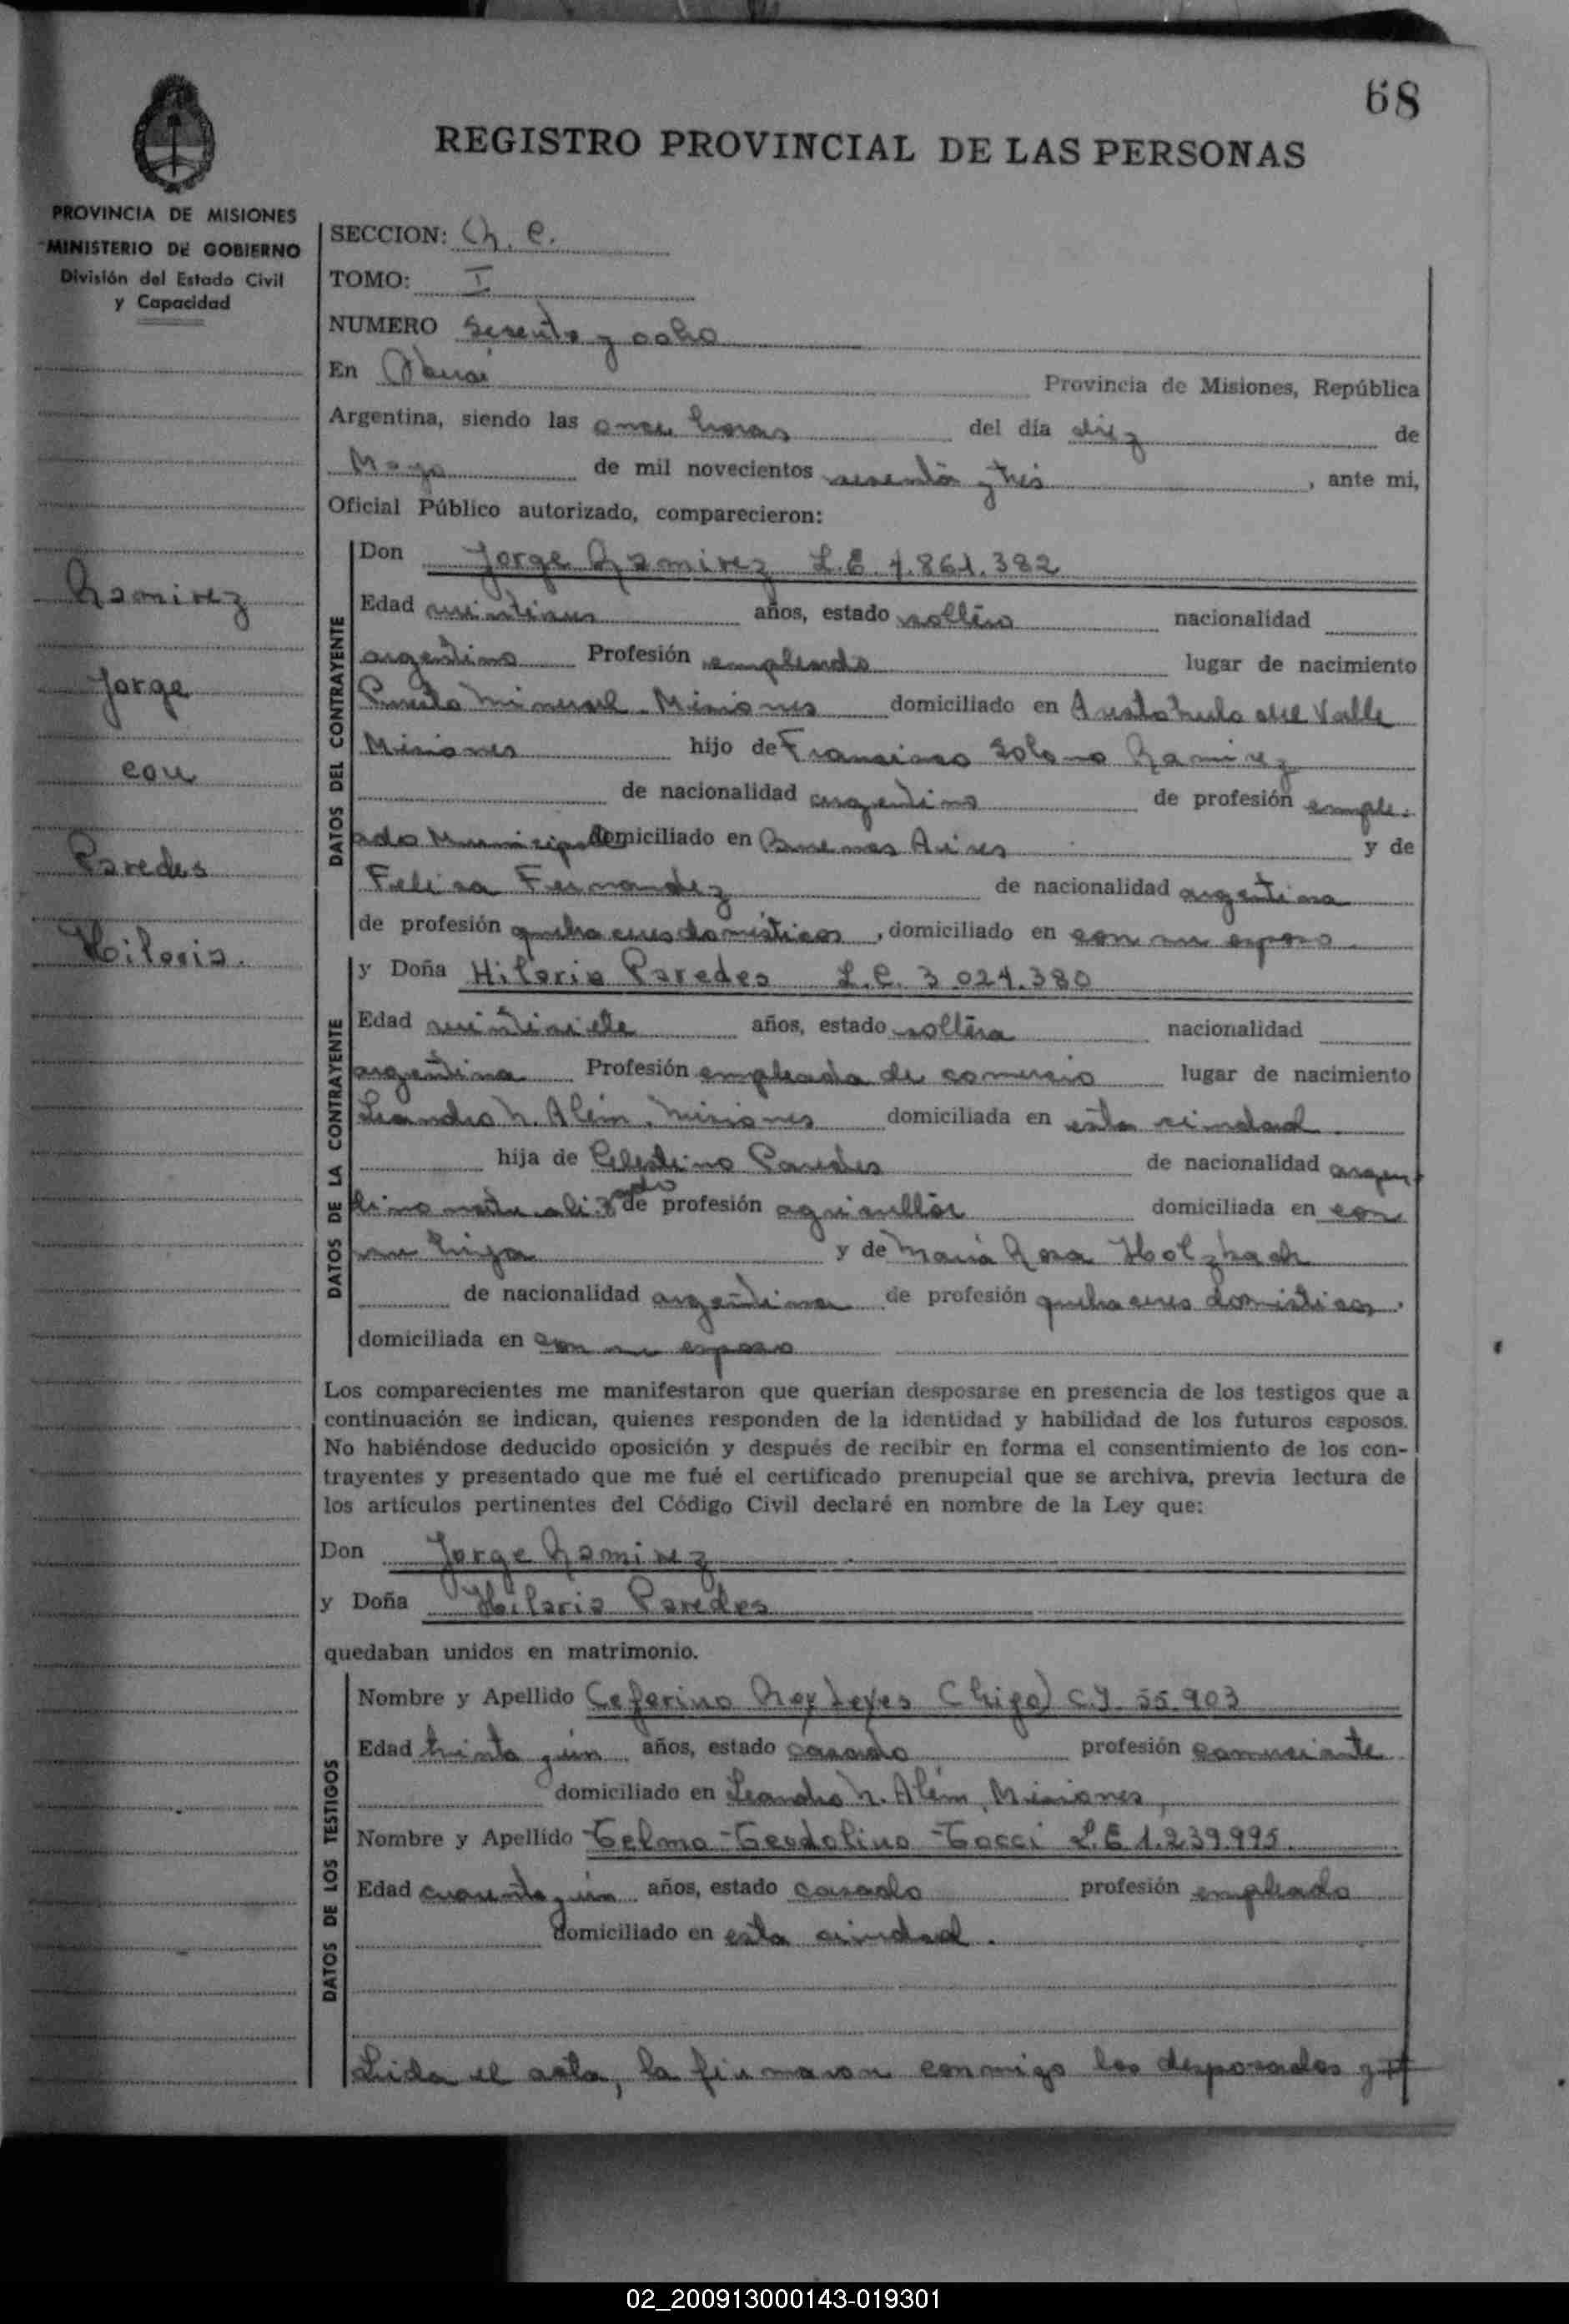 68
REGISTRO PROVINCIAL DE LAS PERSONAS
PROVINCIA DE MISIONES
MINISTERIO DE GOBIERNO
División del Estado Civil
y Capacidad
Ramirez
Jorge
con
Paredes
Hilaria.
SECCION: Ch. C.
TOMO: I
NUMERO Sesenta y ocho
En Oberá Provincia de Misiones, República
Argentina, siendo las once horas del día diez de
Mayo de mil novecientos sesenta y tres, ante mi,
Oficial Público autorizado, comparecieron:
DATOS DEL CONTRAYENTE
Don Jorge Ramirez L.E 7.861.382
Edad años, estado soltero nacionalidad
argentino Profesión empleado lugar de nacimiento
Puerto Mineral Misiones domiciliado en Aristobulo del Valle
Misiones hijo de Francisco Solano Ramirez
de nacionalidad argentino de profesión emple-
ado Municipal domiciliado en Buenos Aires y de
Felisa Fernandez de nacionalidad argentina
de profesión quehaceres domésticos, domiciliado en con su esposo
DATOS DE LA CONTRAYENTE
y Doña Hilaria Paredes L.C. 3.024.380
Edad veintisiete años, estado soltera nacionalidad
argentina Profesión empleada de comercio lugar de nacimiento
Leandro N. Além, Misiones domiciliada en esta ciudad
hija de Celestino Paredes de nacionalidad argen-
tino naturalizado de profesión agricultor domiciliada en con
su hija y de María Rosa Holzbach
de nacionalidad argentina de profesión quehaceres domésticos,
domiciliada en con su esposo
Los comparecientes me manifestaron que querían desposarse en presencia de los testigos que a
continuación se indican, quienes responden de la identidad y habilidad de los futuros esposos.
No habiéndose deducido oposición y después de recibir en forma el consentimiento de los con-
trayentes y presentado que me fué el certificado prenupcial que se archiva, previa lectura de
los artículos pertinentes del Código Civil declaré en nombre de la Ley que:
Don Jorge Ramirez
y Doña Hilaria Paredes
quedaban unidos en matrimonio.
DATOS DE LOS TESTIGOS
Nombre y Apellido Ceferino Rey Leyes (hijo) C.I. 55.903
Edad treinta y un años, estado casado profesión comerciante
domiciliado en Leandro N. Além, Misiones,
Nombre y Apellido Telmo Teodolino Tocci L.E 1.239.995.
Edad cuarenta y un años, estado casado profesión empleado
domiciliado en esta ciudad.
Leida el acta, la firmaron conmigo los desposados y
02_200913000143-019301